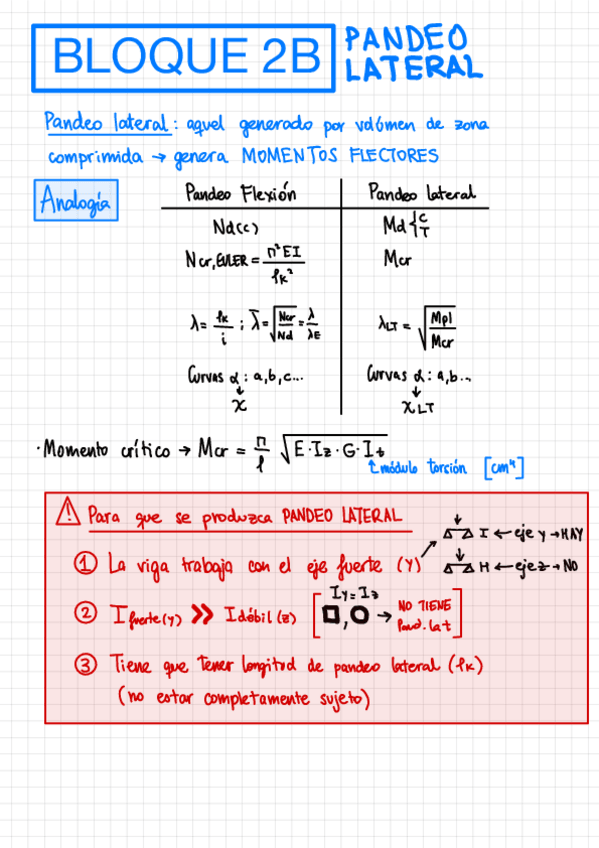 BLOQUE 2B PANDEO LATERAL
Pandeo lateral: aquel generado por volúmen de zona
comprimida → genera MOMENTOS FLECTORES
Analogía
Pandeo Flexión | Pandeo lateral
Nd(c) | Md { C T
Ncr,EULER = π²EI / lk² | Mcr
λ = lk / i ; λ̄ = √(Ncr / Nd) = λ / λE | λLT = √(Mpl / Mcr)
Curvas α: a,b,c... | Curvas α: a,b...
↓ | ↓
χ | χLT
· Momento crítico → Mcr = π / l √(E·Iz·G·It)
↑ módulo torsión [cm⁴]
⚠ Para que se produzca PANDEO LATERAL
① La viga trabaja con el eje fuerte (Y)
I ← eje y → HAY
H ← eje z → NO
② I fuerte(y) >> I débil(z) [ Iy=Iz □, ○ → NO TIENE Pand. lat ]
③ Tiene que tener longitud de pandeo lateral (lk)
(no estar completamente sujeto)